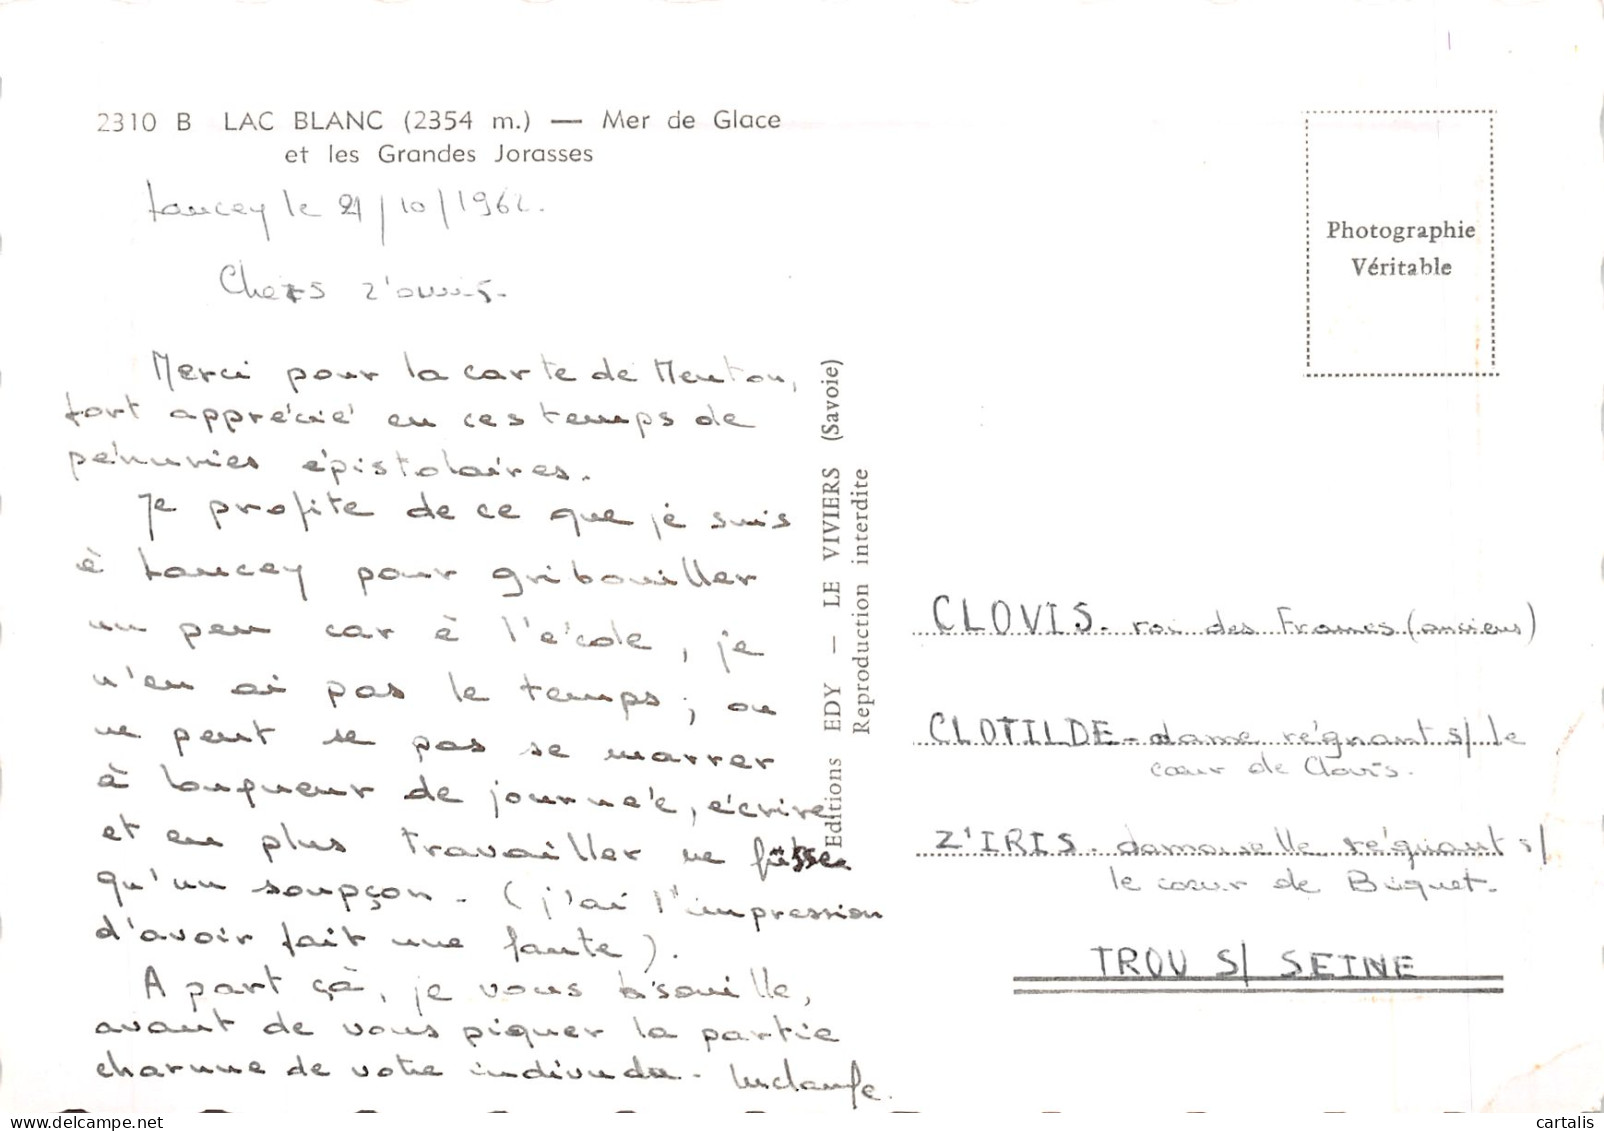 2310 B LAC BLANC (2354 m.) — Mer de Glace
et les Grandes Jorasses
le 21/10/1962.
Chers z'
Merci pour la carte de Menton,
fort apprécié en ces temps de
pénuries épistolaires.
Je profite de ce que je suis
à pour gribouiller
un peu car à l'école, je
n'en ai pas le temps ; on
ne peut se pas se marrer
à longueur de journée, écrire
et en plus travailler ne fusse
qu'un soupçon - (j'ai l'impression
d'avoir fait une faute).
A part çà, je vous
avant de vous piquer la partie
charnue de votre
Photographie
Véritable
Editions EDY — LE VIVIERS (Savoie)
Reproduction interdite
CLOVIS - roi des Francs (anciens)
CLOTILDE - dame régnant s/ le
cœur de Clovis.
Z'IRIS - damoiselle régnant s/
le cœur de Biquet.
TROU S/ SEINE
cartalis